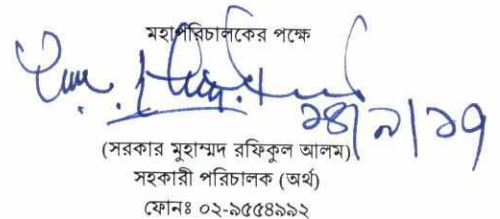 মহাপরিচালকের পক্ষে
১৪/৯/১৭
(সরকার মুহাম্মদ রফিকুল আলম)
সহকারী পরিচালক (অর্থ)
ফোনঃ ০২-৯৫৫৪৯৯২